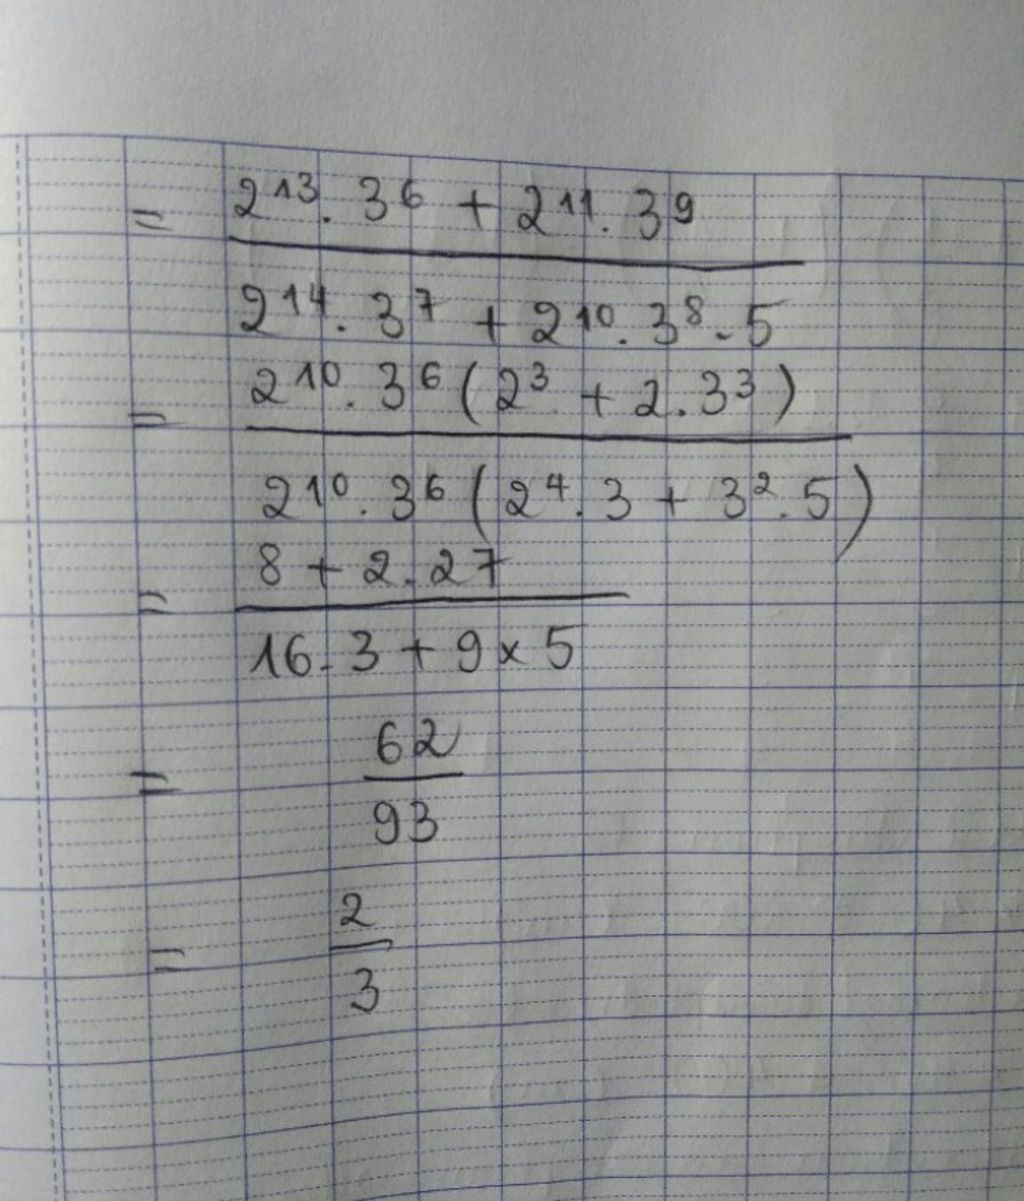 = 2¹³. 3⁶ + 2¹¹. 3⁹
2¹⁴. 3⁷ + 2¹⁰. 3⁸. 5
= 2¹⁰. 3⁶ (2³ + 2. 3³)
2¹⁰. 3⁶ (2⁴. 3 + 3². 5)
= 8 + 2. 27
16. 3 + 9 × 5
= 62
93
= 2
3